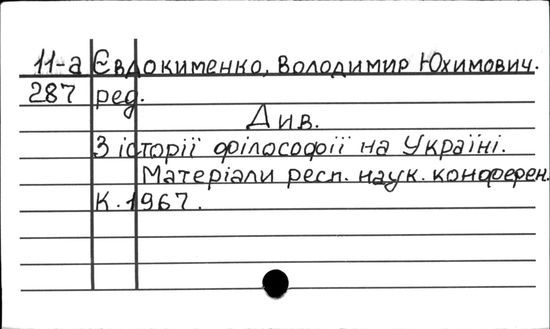 11-а Євдокименко, Володимир Юхимович.
287 ред.
Див.
З історії філософії на Україні.
Матеріали респ. наук. конферен.
К. 1967.